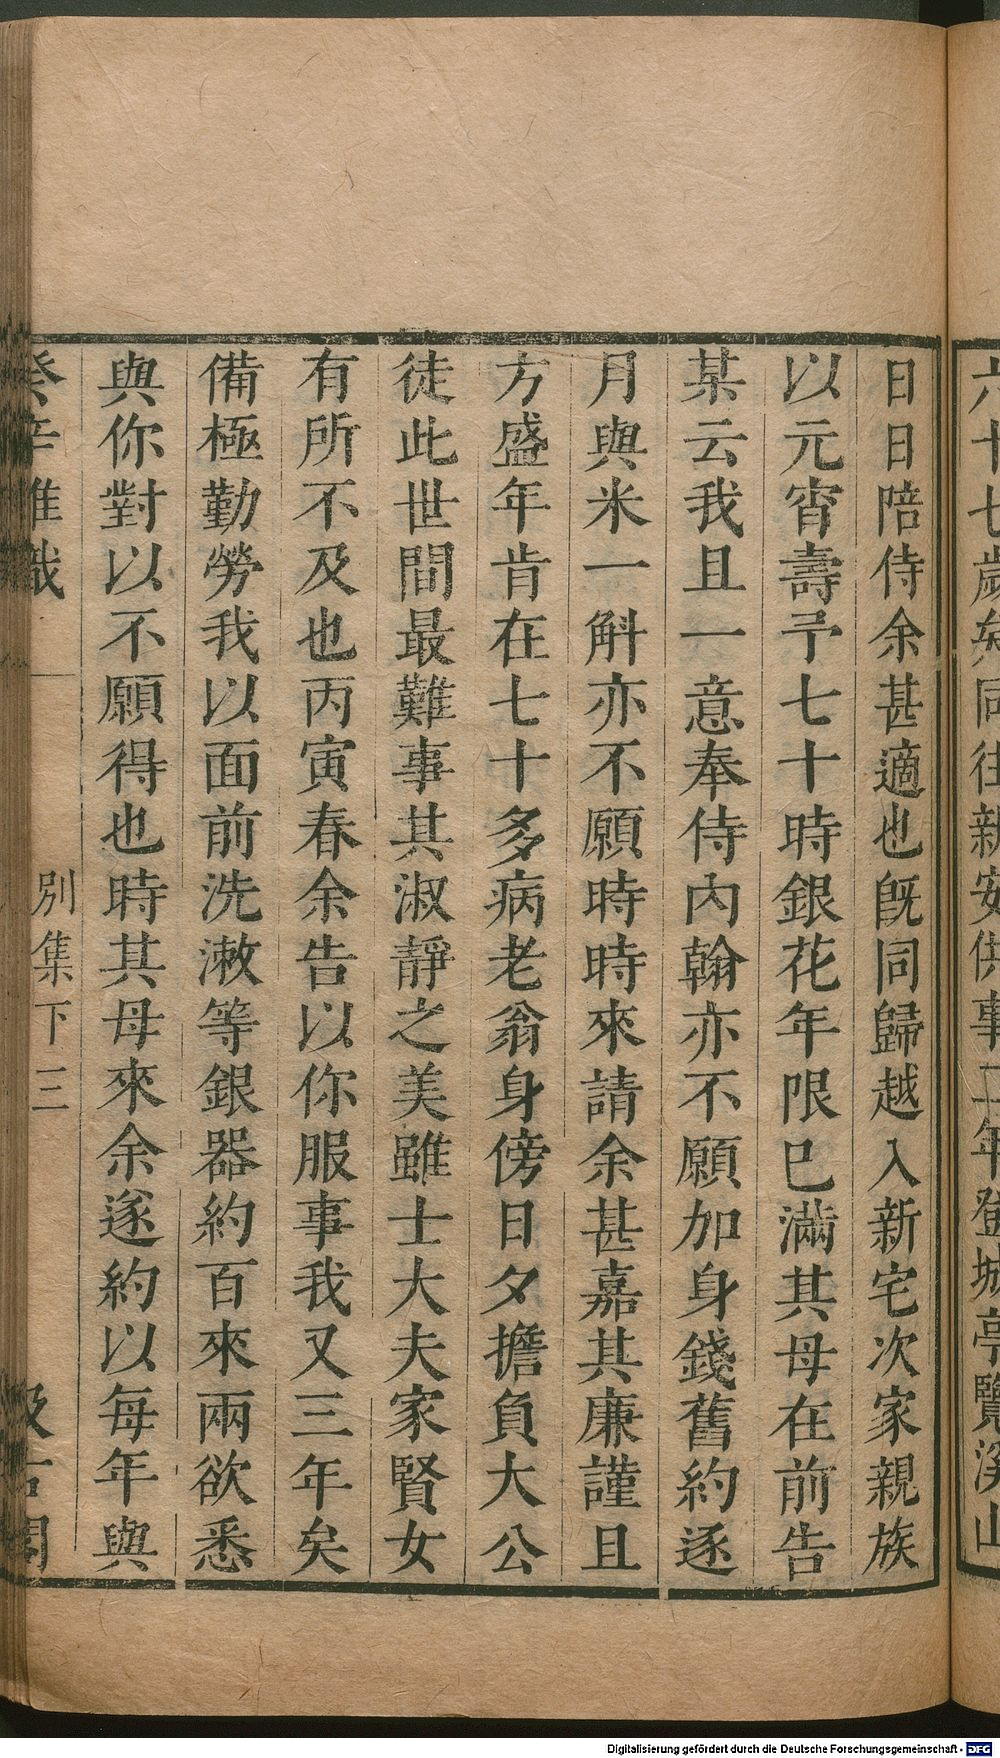 六十七歲矣同往新安供事二年登城亭覽溪山
日日陪侍余甚適也旣同歸越入新宅次家親族
以元宵壽予七十時銀花年限巳滿其母在前告
某云我且一意奉侍內翰亦不願加身錢舊約逐
月與米一斛亦不願時時來請余甚嘉其廉謹且
方盛年肯在七十多病老翁身傍日夕擔負大公
徒此世間最難事其淑靜之美雖士大夫家賢女
有所不及也丙寅春余告以你服事我又三年矣
備極勤勞我以面前洗漱等銀器約百來兩欲悉
與你對以不願得也時其母來余遂約以每年與
癸辛雜識 別集下 三 汲古閣
Digitalisierung gefördert durch die Deutsche Forschungsgemeinschaft - DFG